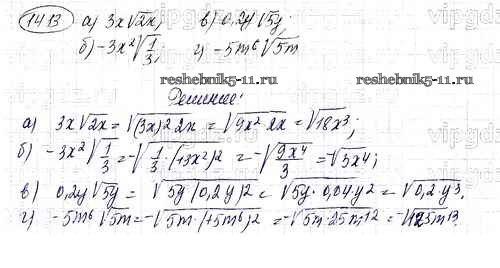 1413 а) 3x√2x, в) 0,2y√5y;
б) -3x²√1/3, г) -5m⁶√5m
reshebnik5-11.ru reshebnik5-11.ru
Решение:
а) 3x√2x = √(3x)²·2x = √9x²·2x = √18x³;
б) -3x²√1/3 = -√1/3·(+3x²)² = -√9x⁴/3 = -√3x⁴;
в) 0,2y√5y = √5y(0,2y)² = √5y·0,04y² = √0,2·y³.
г) -5m⁶√5m = -√5m·(+5m⁶)² = -√5m·25m¹² = -√125m¹³.